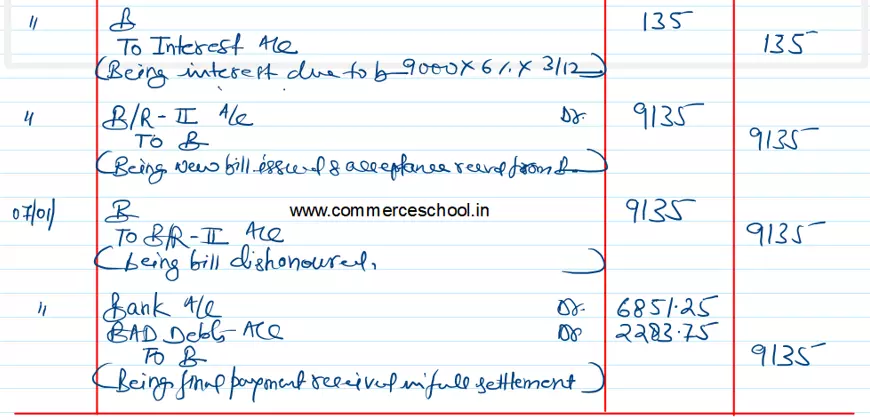 " B 135
To Interest A/c 135
(Being interest due to b 9000 X 6 % X 3/12)
" B/R - II A/c Dr. 9135
To B 9135
(Being new bill issued & acceptance recvd from B.
07/01/ B 9135
www.commerceschool.in
To B/R - II A/c 9135
(being bill dishonoured, )
" Bank A/c Dr. 6851.25
BAD Debts A/c Dr 2283.75
To B 9135
(Being final payment received in full settlement)